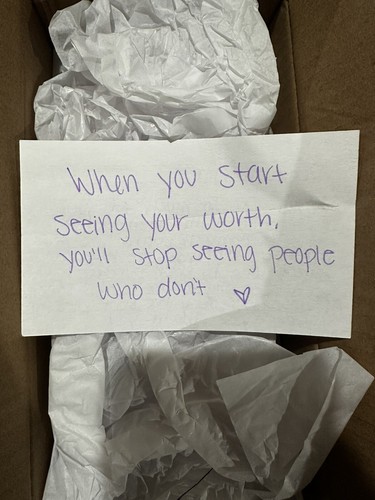 When you start
seeing your worth,
you'll stop seeing people
who don't ♡